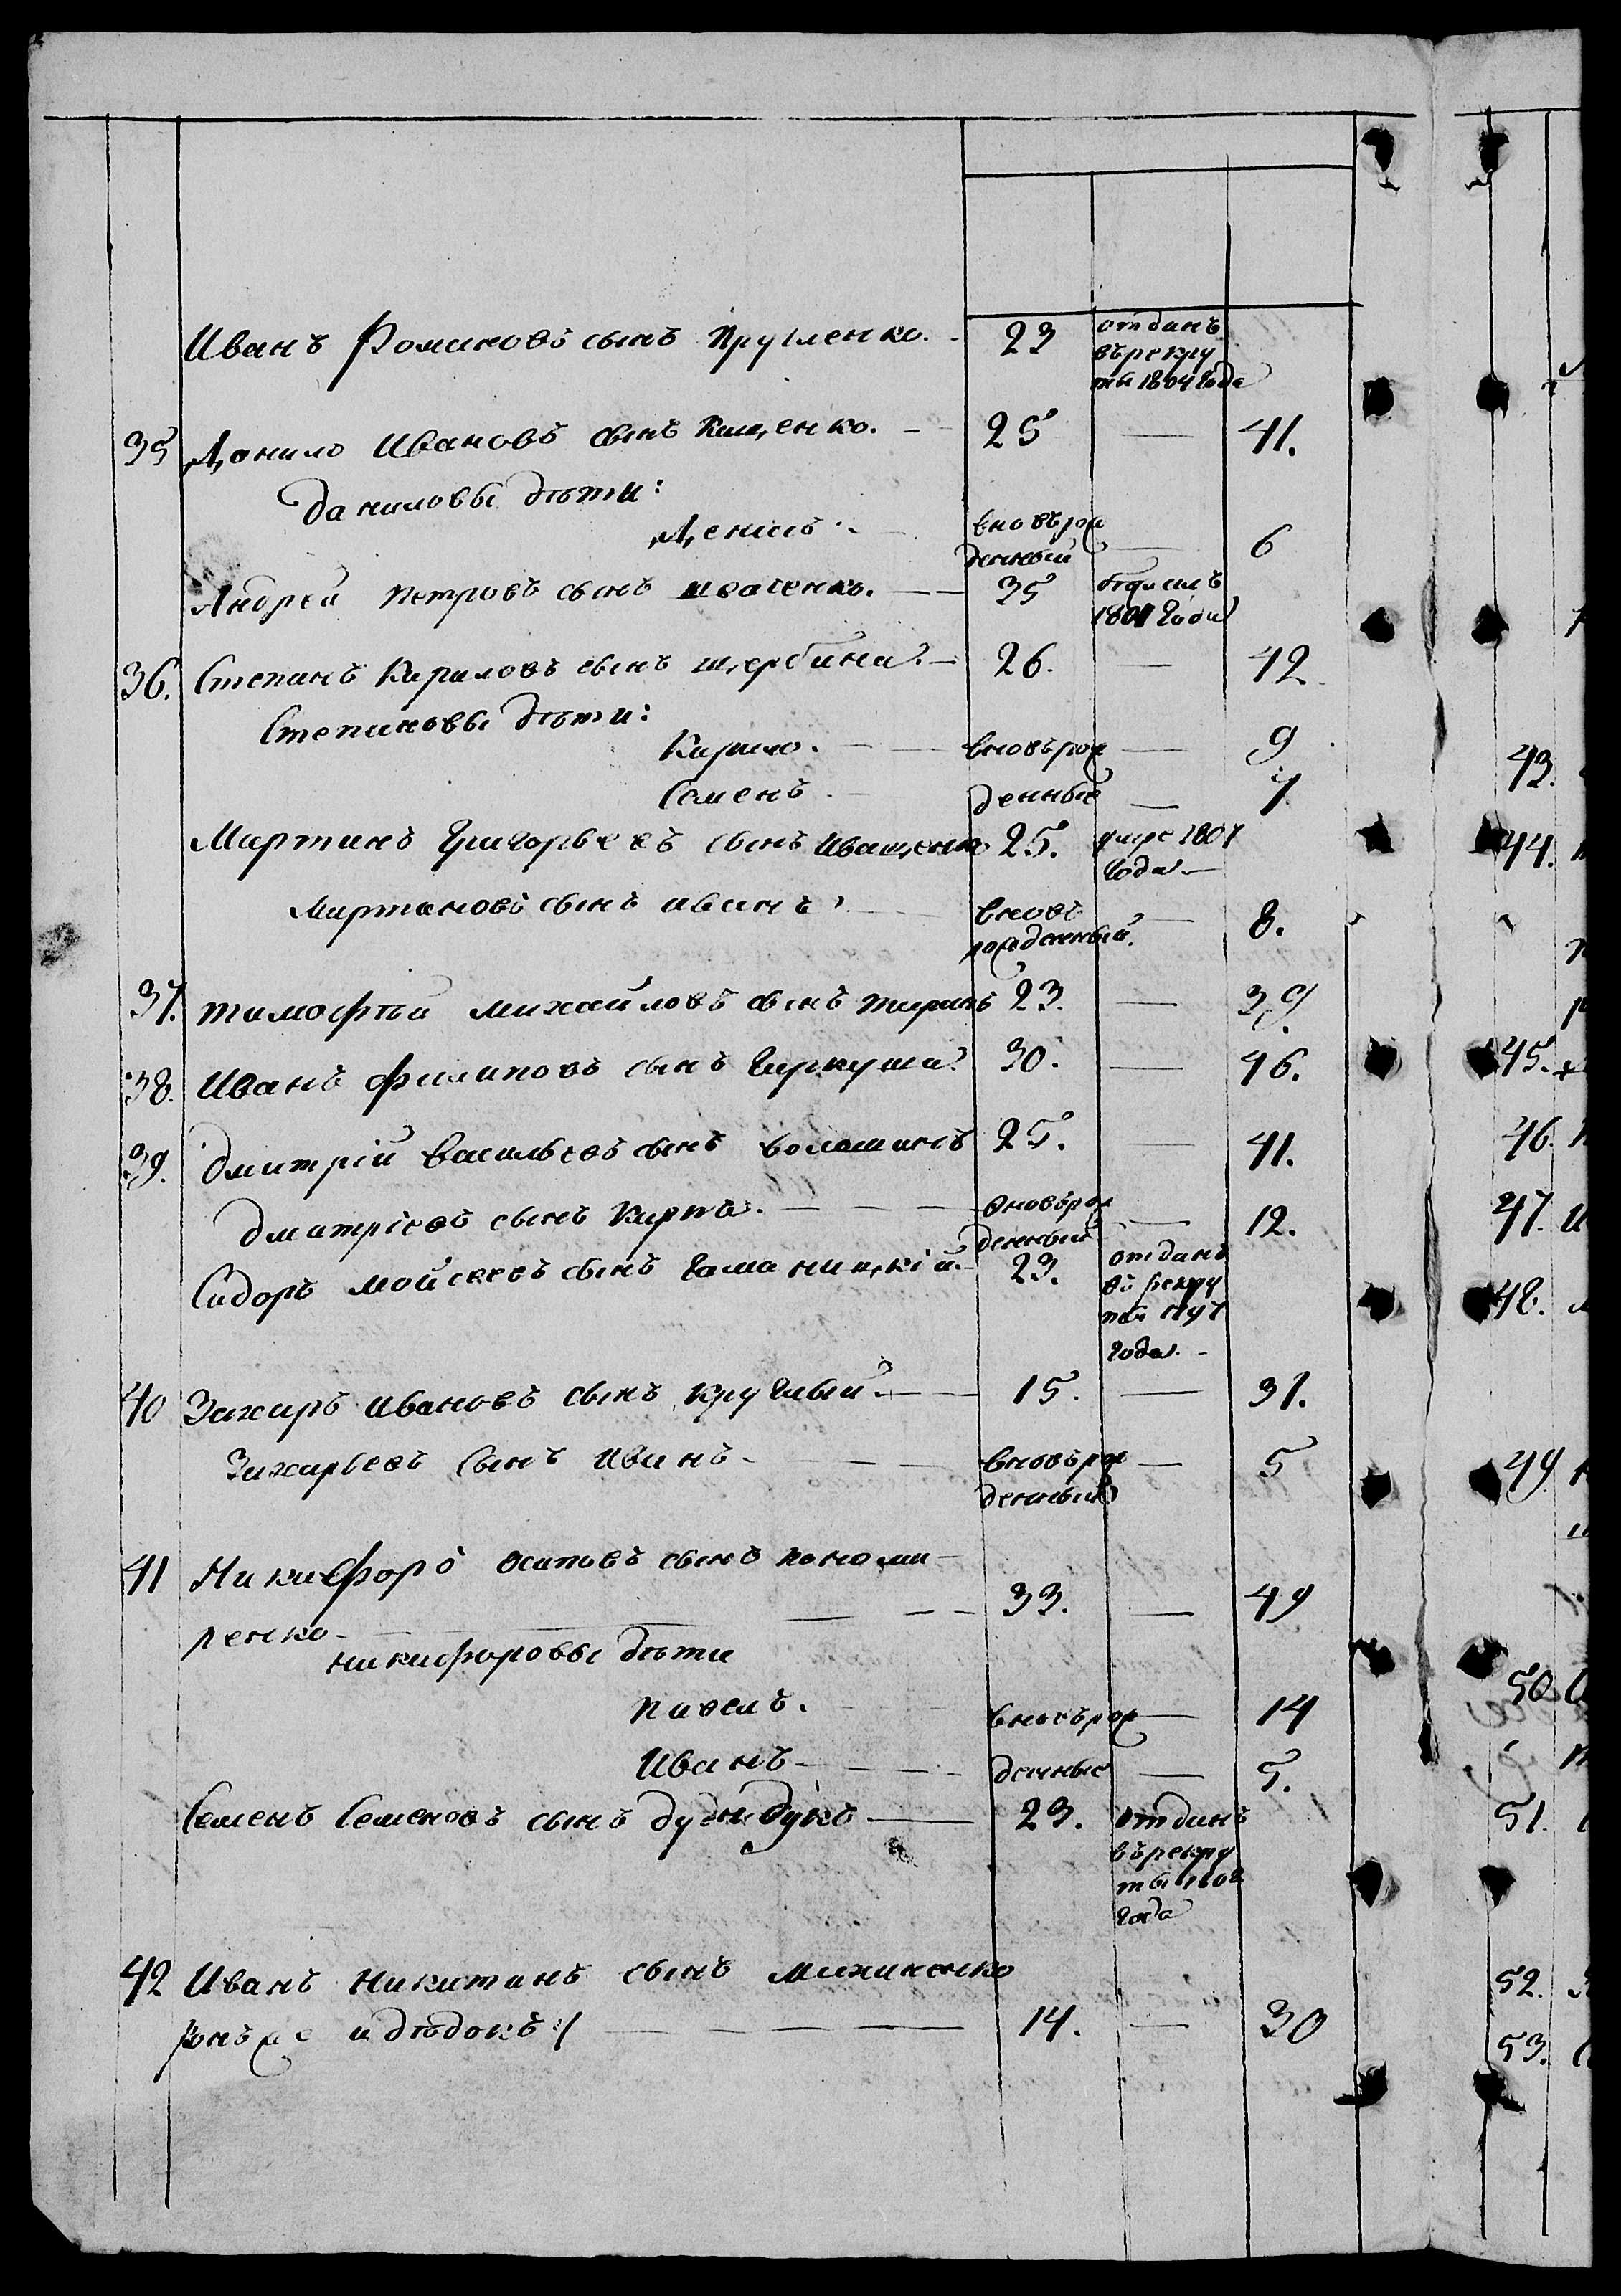 Иванъ Романовъ сынъ 23 отданъ
въ рекру
ты 1804 года
35 Данило Ивановъ сынъ Кищенко. 25 — 41.
Даниловы дѣти:
Денисъ вновърож
денный — 6
Андрей Петровъ сынъ Ивченко. 35
1801 года
36. Степанъ Кириловъ сынъ щербина. 26. — 42
Степановы дѣти:
Кирило. вновърож — 9
Семенъ денные — 7
Мартинъ Григорьевъ сынъ Иващенко 25. умре 1807
года
Мартиновъ сынъ иванъ вновь
рожденный. — 8.
37. тимофѣй михайловъ сынъ 23. — 39.
38. Иванъ филиповъ сынъ Гаркуша 30. — 46.
39. Дмитрій васильевъ сынъ волошинъ 25. — 41.
Дмитріевъ сынъ Карпъ. вновърож
денный — 12.
Сидоръ мойсеевъ сынъ 23. отданъ
въ рекру
ты 1797
года.
40 Захаръ ивановъ сынъ круглый. 15. — 31.
Захарьевъ сынъ иванъ вновърож
денный — 5
41 Никифоръ осиповъ сынъ понома-
ренко 33. — 49
никифоровы дѣти
павелъ. вновърож — 14
Иванъ денные — 5.
Семенъ Семеновъ сынъ 23. отданъ
въ рекру
ты 1808
года
42 Иванъ Никитинъ сынъ михненко
онъже и дѣдокъ 14. — 30
43.
44.
45.
46.
47.
48.
49.
50
51.
52.
53.